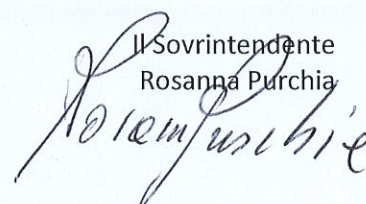 Il Sovrintendente
Rosanna Purchia
Rosanna Purchia